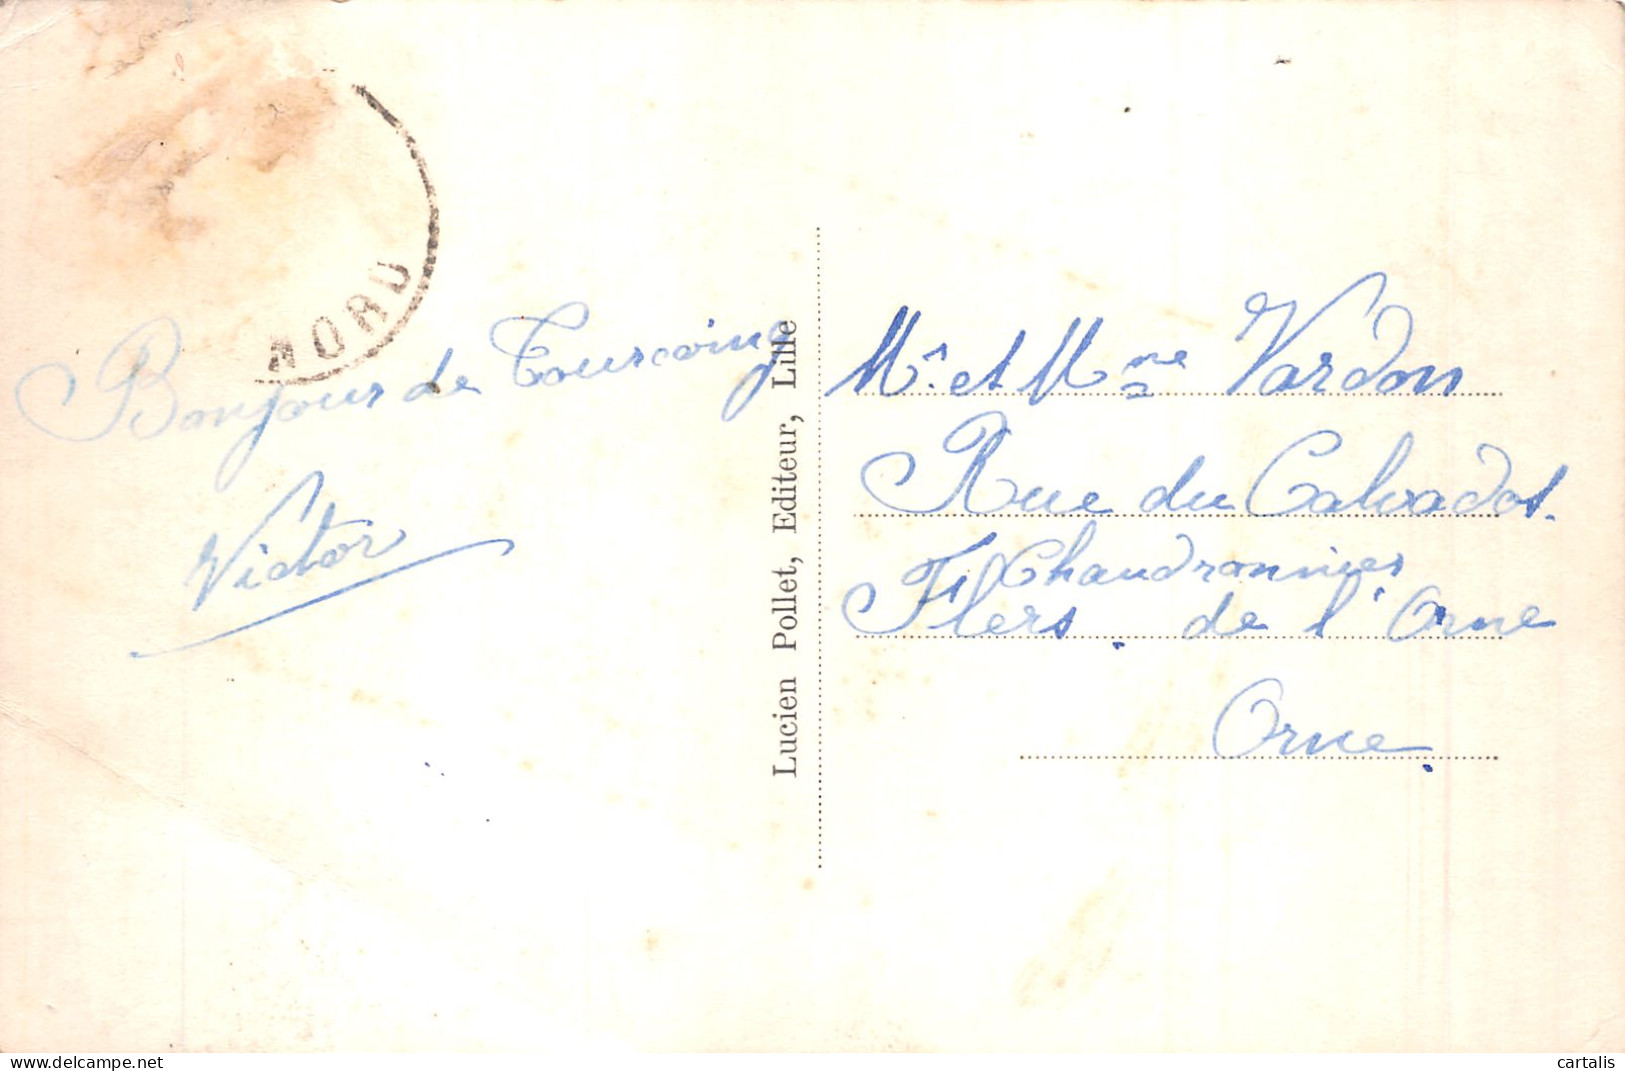 NORD
Bonjour de Tourcoing
Victor
Lucien Pollet, Editeur, Lille
Mr. et Mme Vardon
Rue du Calvados.
Chaudronnier
Flers. de l'Orne
Orne.
cartalis